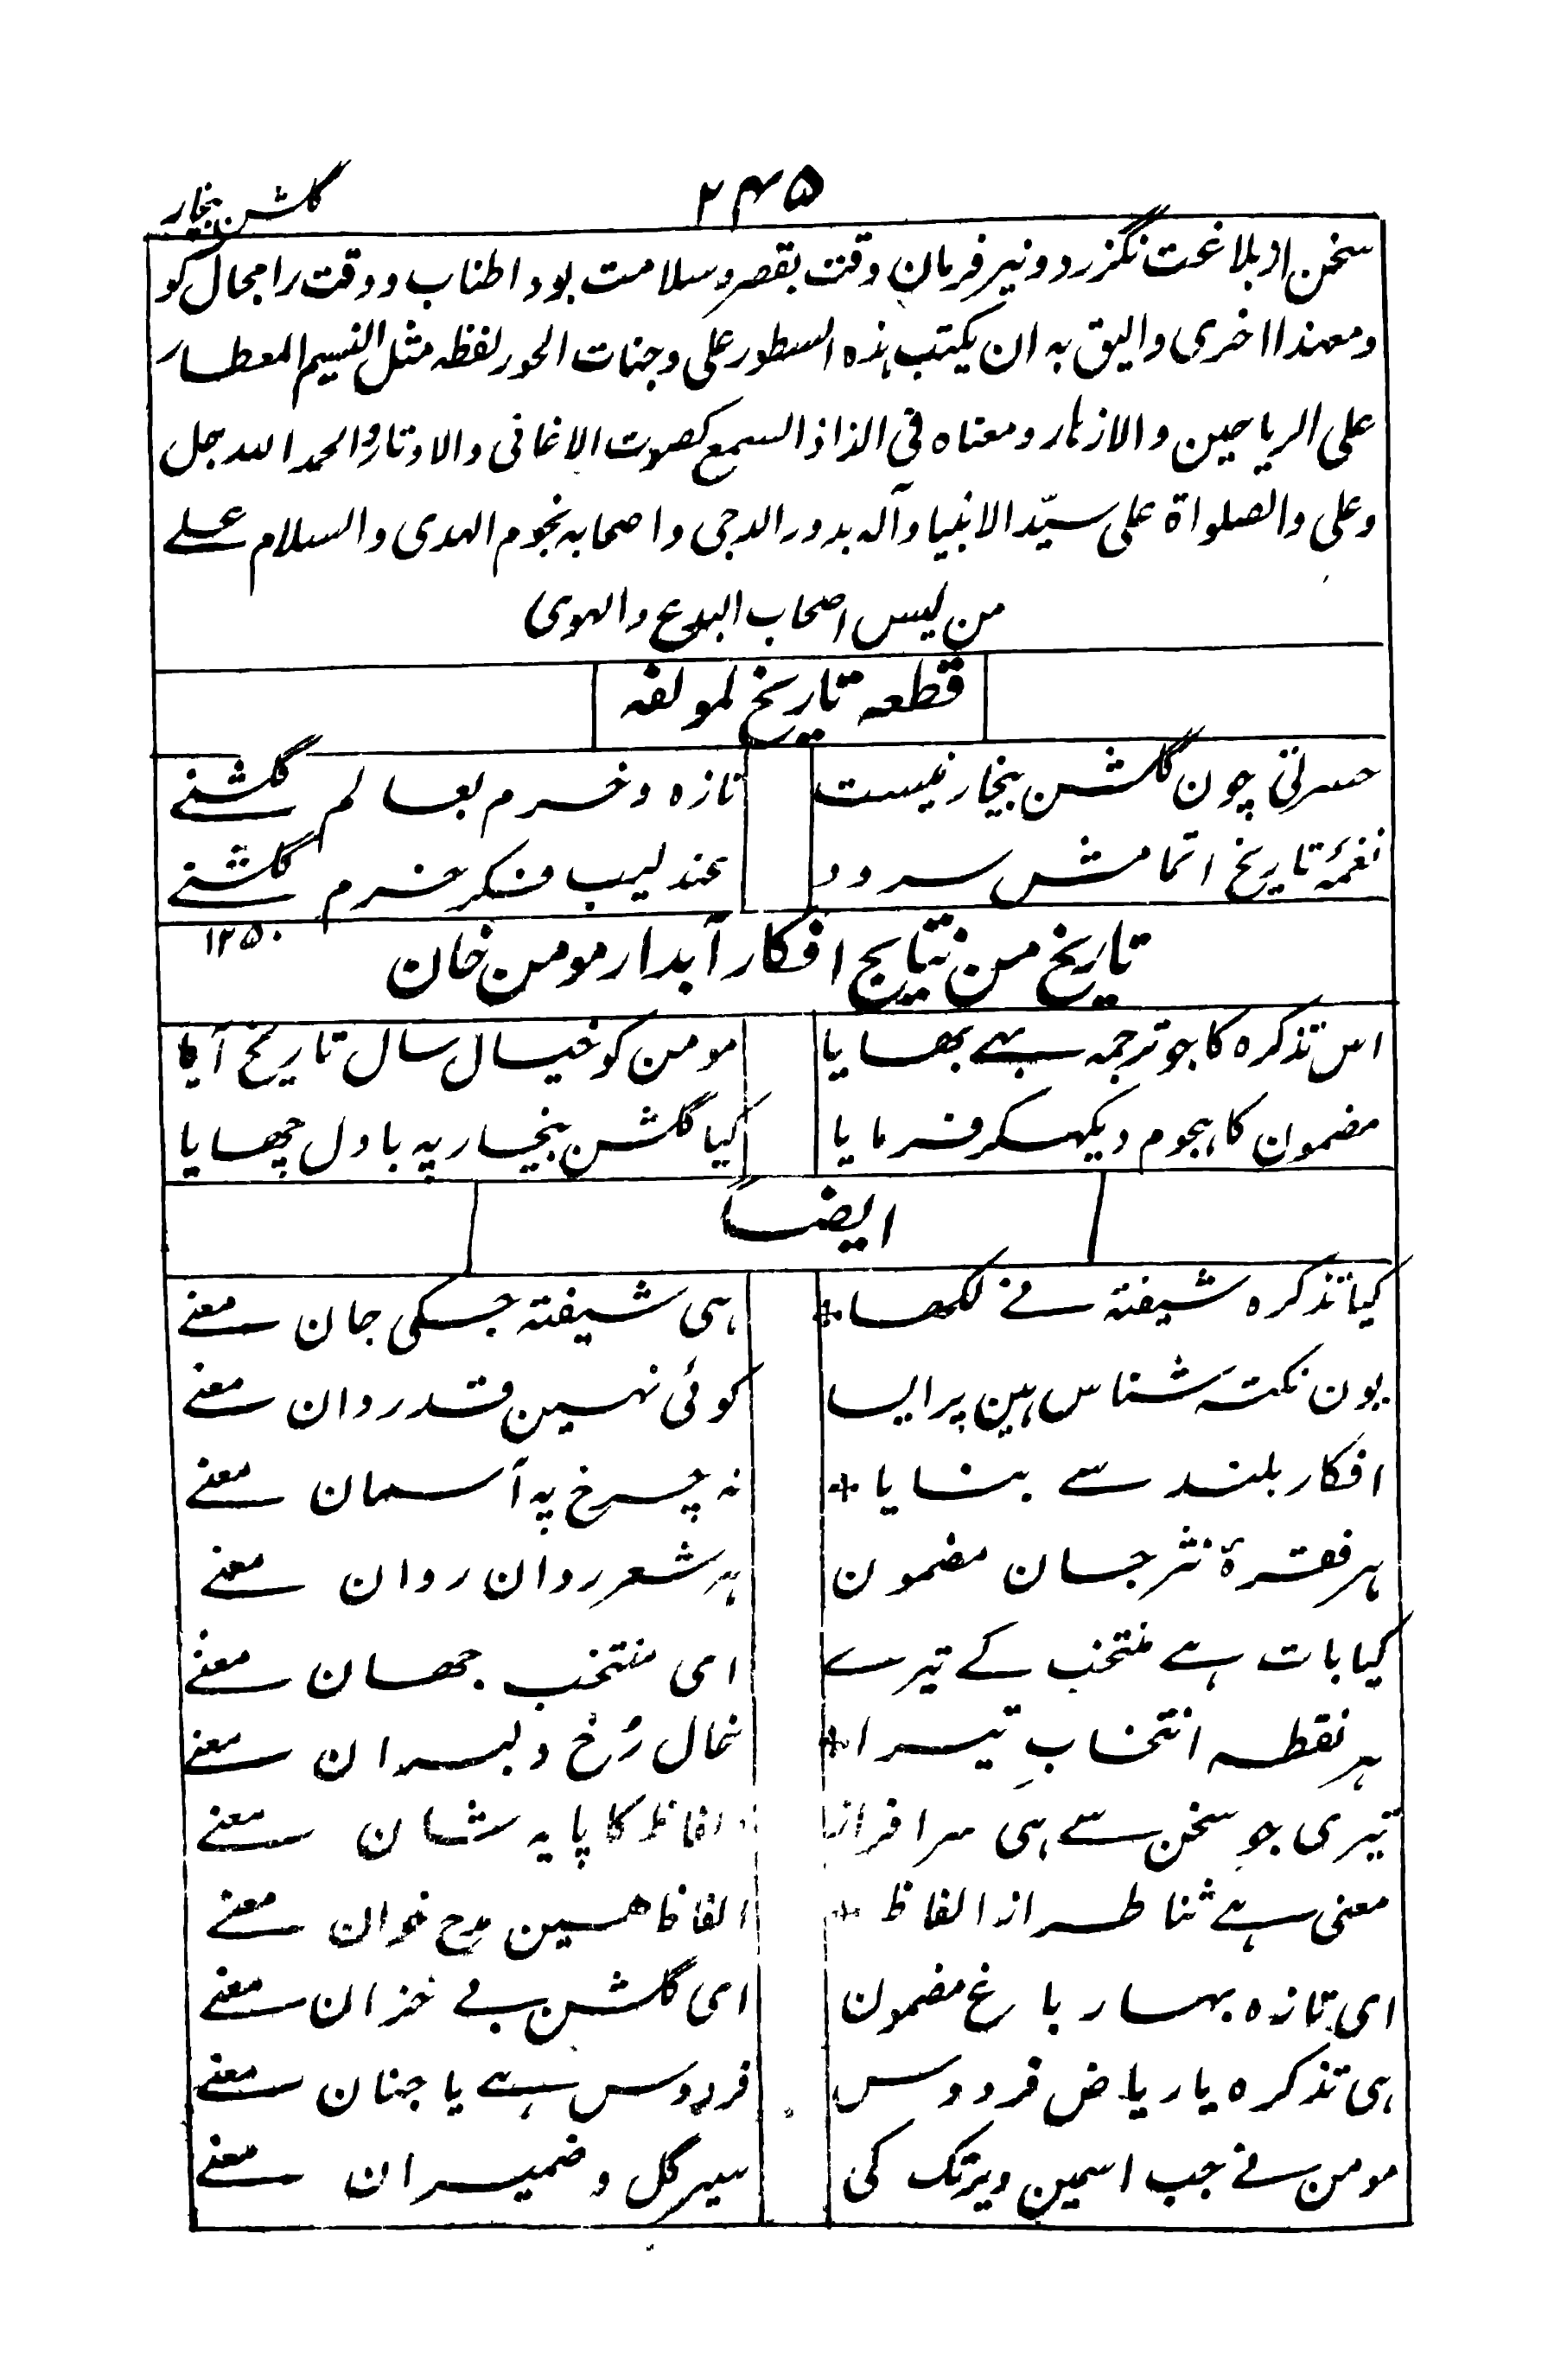 گلشن بیخار
۲۴۵
سخن از بلاغت نگزرد و نیز فرمان وقت بقصر و سلامت بود اطناب و دقت را مجال کو
ومعہذا اخری والیق بہ ان یکتب ہذہ السطور علی وجنات الحور لفظہ مثل النسیم المعطار
علی الریاحین والازہار ومعناہ فی الذاذ السمع کصوت الاغانی والاوتار والحمد اللہ جل
وعلی والصلواۃ علی سیّد الانبیا وآلہ بدور الدجی واصحابہ نجوم الہدی والسلام علے
من لیس اصحاب البدع والہوی
قطعہ تاریخ لمولفہ
حسرتی چون گلشن بیخار نیست تازہ و خرم بعالم گلشنے
نغمۂ تاریخ اتمامش سرود عندلیب فکر خرم گلشنے
۱۲۵۰
تاریخ من نتایج افکار آبدار مومن خان
اس تذکرہ کا جو ترجمہ ہے بھایا مومن کو خیال سال تاریخ آیا
مضمون کا ہجوم دیکھکر فرمایا کیا گلشن بیخار پہ بادل چھایا
ایضاً
کیا تذکرہ شیفتہ نے لکھا ہی شیفتہ جسکی جان معنے
یون نکتہ شناس ہین پر ایسا کوئی نہین قدردان معنے
افکار بلند سے بنایا نہ چرخ پہ آسمان معنے
ہر فقرۂ نثر جسان مضمون ہر شعر روان روان معنے
کیا بات ہے منتخب کے تیرے ای منتخب جھان معنے
ہر نقطہ انتخابِ تیرا خال رُخ دلبران معنے
تیری جو سخن سے ہی سرافراز الفاظ کا پایہ شان معنے
معنی ہے ثنا طراز الفاظ الفاظ ھین مدح خوان معنے
ای تازہ بہار باغ مضمون ای گلشن بے خزان معنے
ہی تذکرہ یا ریاض فردوس فردوس ہے یا جنان معنے
مومن نے جب اسمین دیر تک کی سیر گل و ضمیران معنے